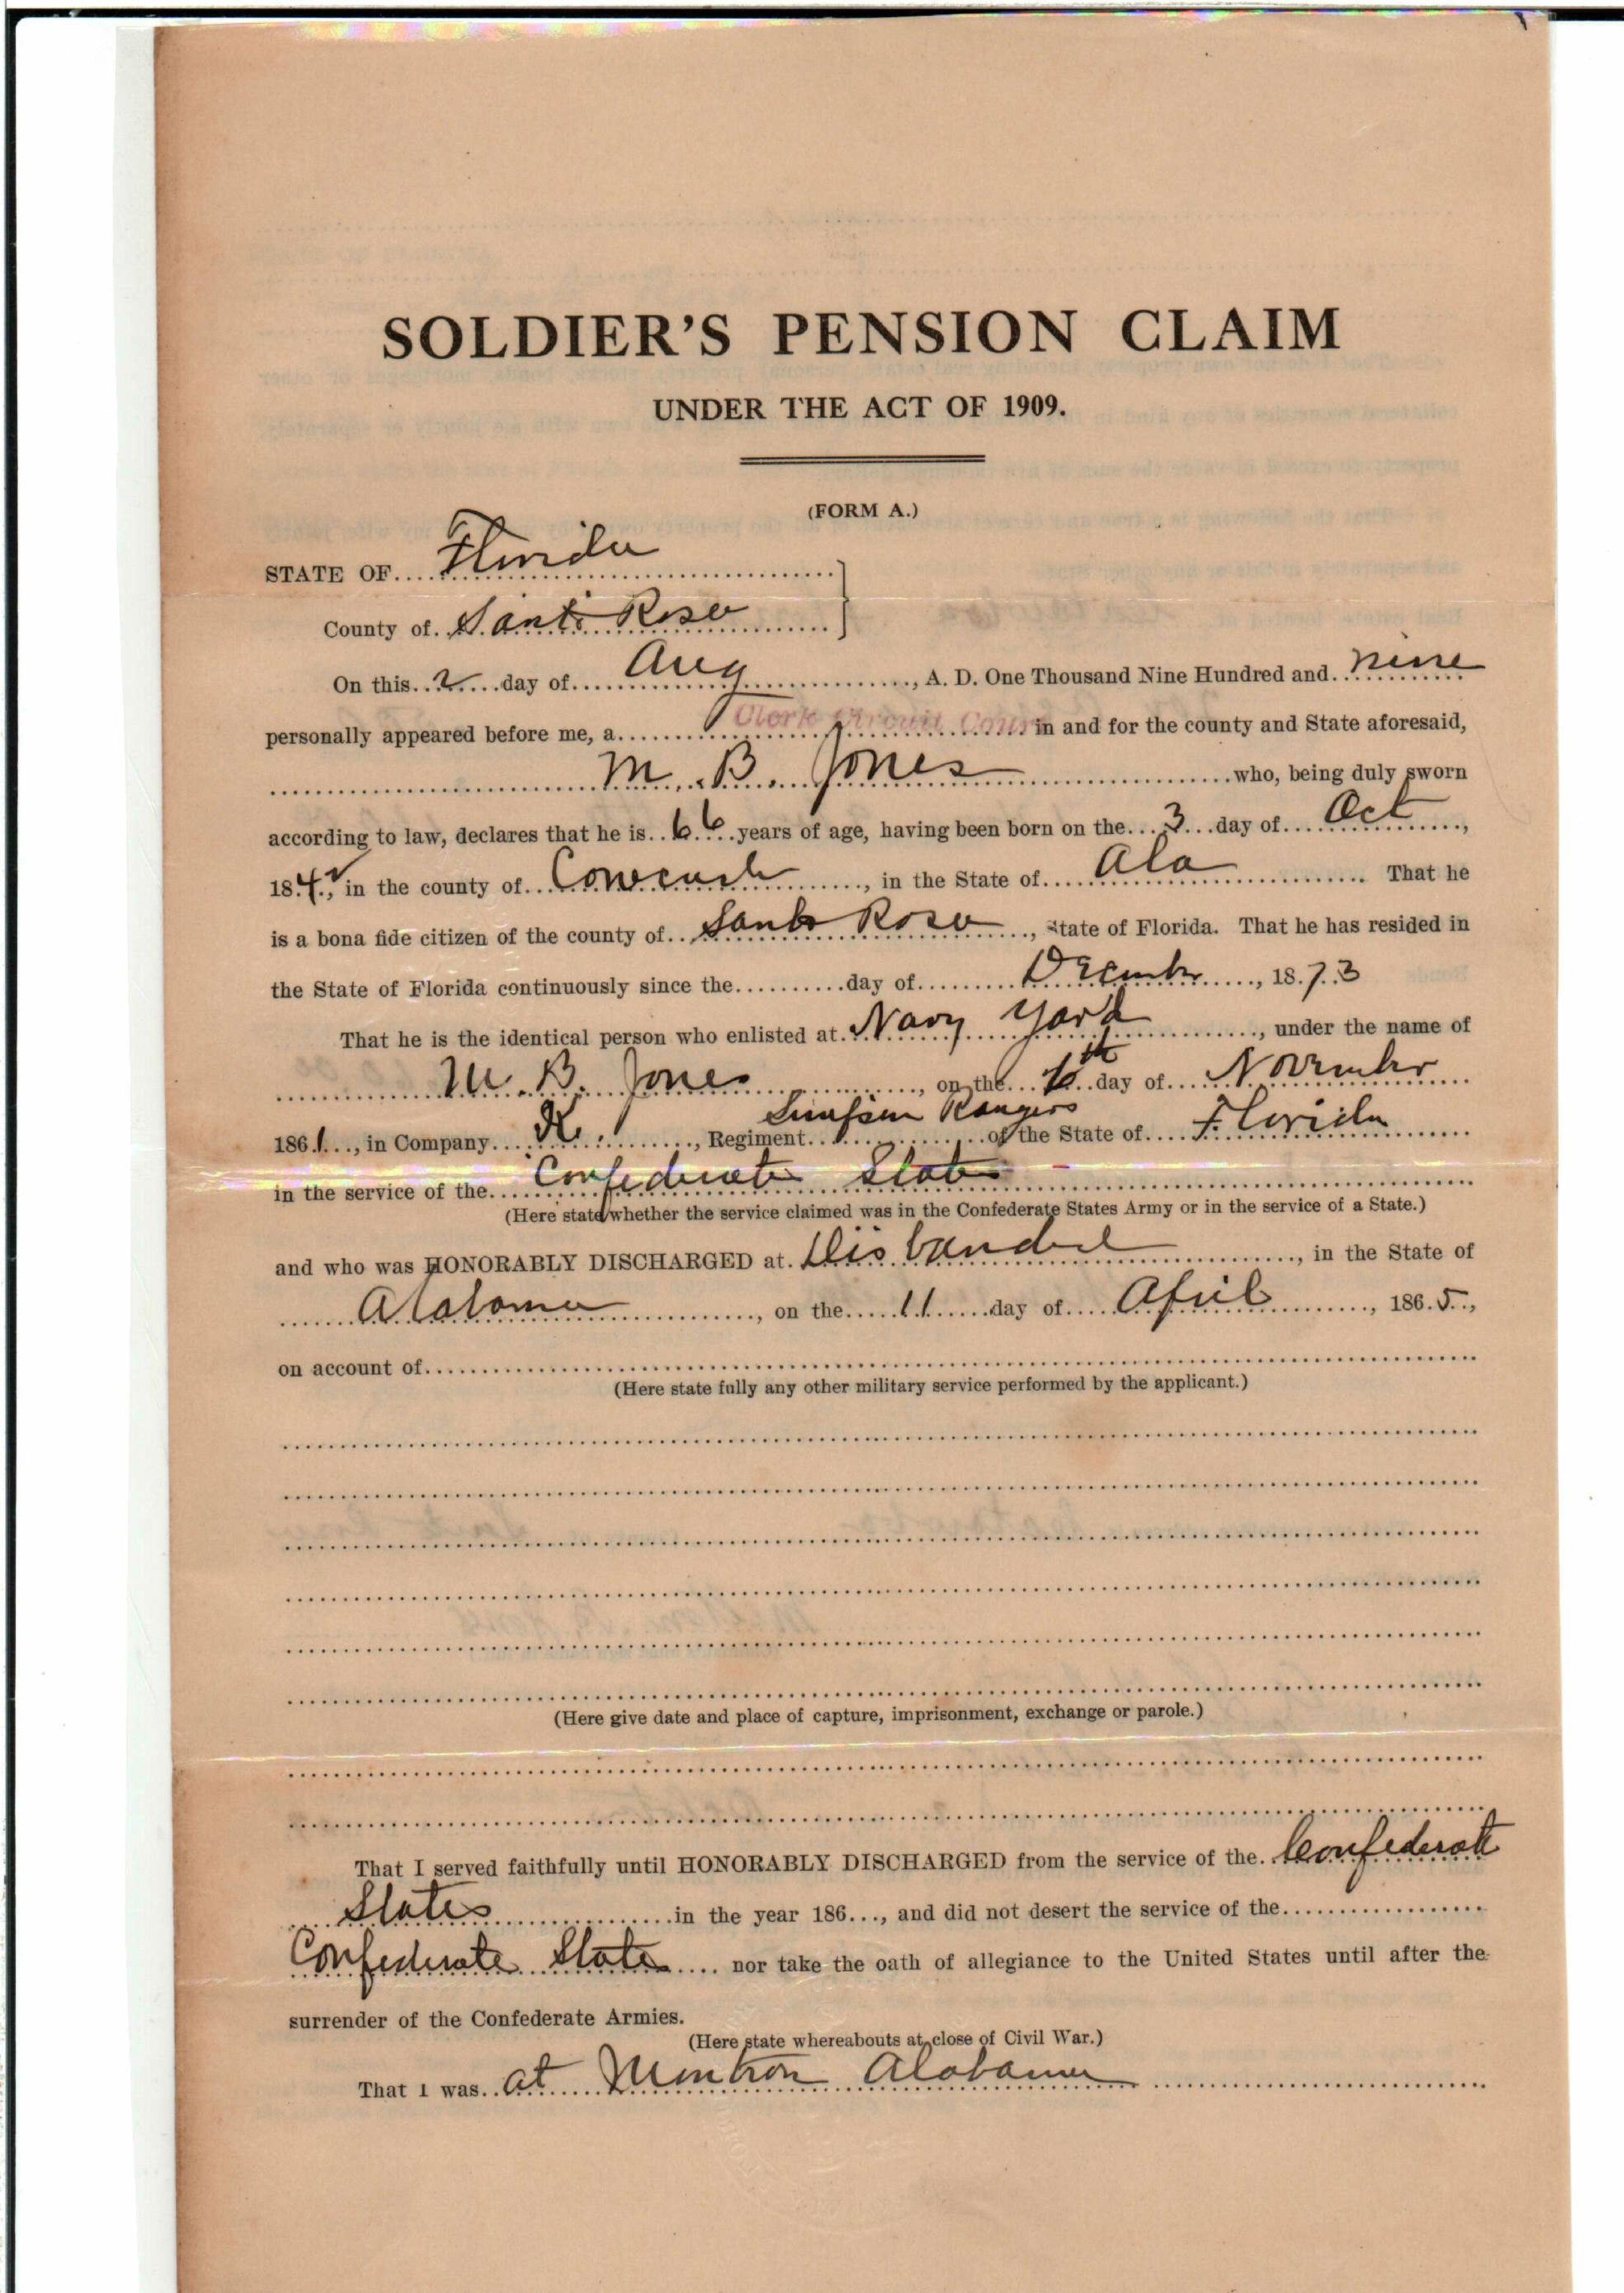 SOLDIER'S PENSION CLAIM
UNDER THE ACT OF 1909.
(FORM A.)
STATE OF Florida
County of Santa Rosa
On this 2 day of Aug, A. D. One Thousand Nine Hundred and nine
personally appeared before me, a Clerk Circuit Court in and for the county and State aforesaid,
M. B. Jones who, being duly sworn
according to law, declares that he is 66 years of age, having been born on the 3 day of Oct,
1842, in the county of Conecuh, in the State of Ala. That he
is a bona fide citizen of the county of Santa Rosa, State of Florida. That he has resided in
the State of Florida continuously since the day of December, 1873
That he is the identical person who enlisted at Navy Yard, under the name of
M. B. Jones, on the th day of November
1861, in Company K, Regiment Simpson Rangers of the State of Florida
in the service of the Confederate States
(Here state whether the service claimed was in the Confederate States Army or in the service of a State.)
and who was HONORABLY DISCHARGED at Disbanded, in the State of
Alabama, on the 11 day of April, 1865,
on account of
(Here state fully any other military service performed by the applicant.)
(Here give date and place of capture, imprisonment, exchange or parole.)
That I served faithfully until HONORABLY DISCHARGED from the service of the Confederate
States in the year 186, and did not desert the service of the
Confederate States nor take the oath of allegiance to the United States until after the
surrender of the Confederate Armies.
(Here state whereabouts at close of Civil War.)
That I was at Alabama